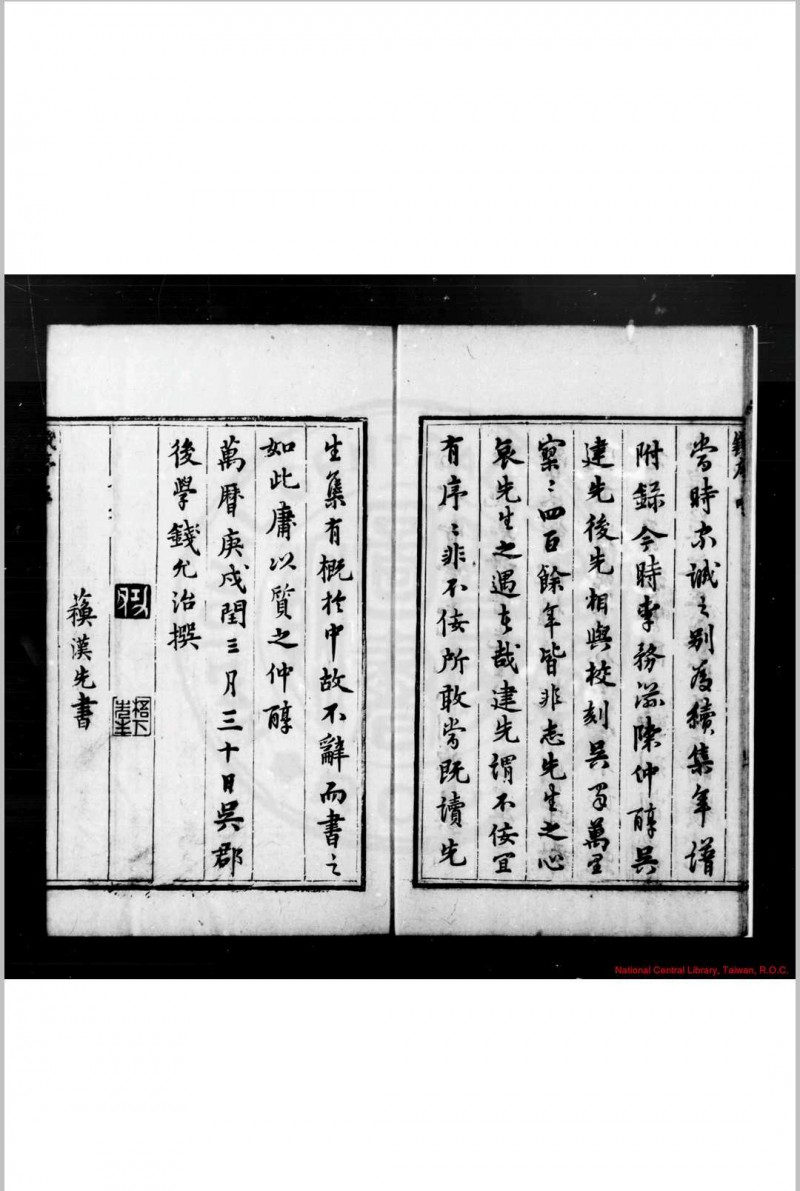 當時亦誠之別為續集年譜
附錄今時李務滋陳仲醇吳
建先後先相與校刻吳蜀萬里
寥〻四百餘年皆非志先生之心
哀先生之遇者哉建先謂不佞宜
有序〻非不佞所敢當既讀先
生集有概於中故不辭而書之
如此庸以質之仲醇
萬曆庚戌閏三月三十日吳郡
後學錢允治撰
漢先書
National Central Library, Taiwan, R.O.C.